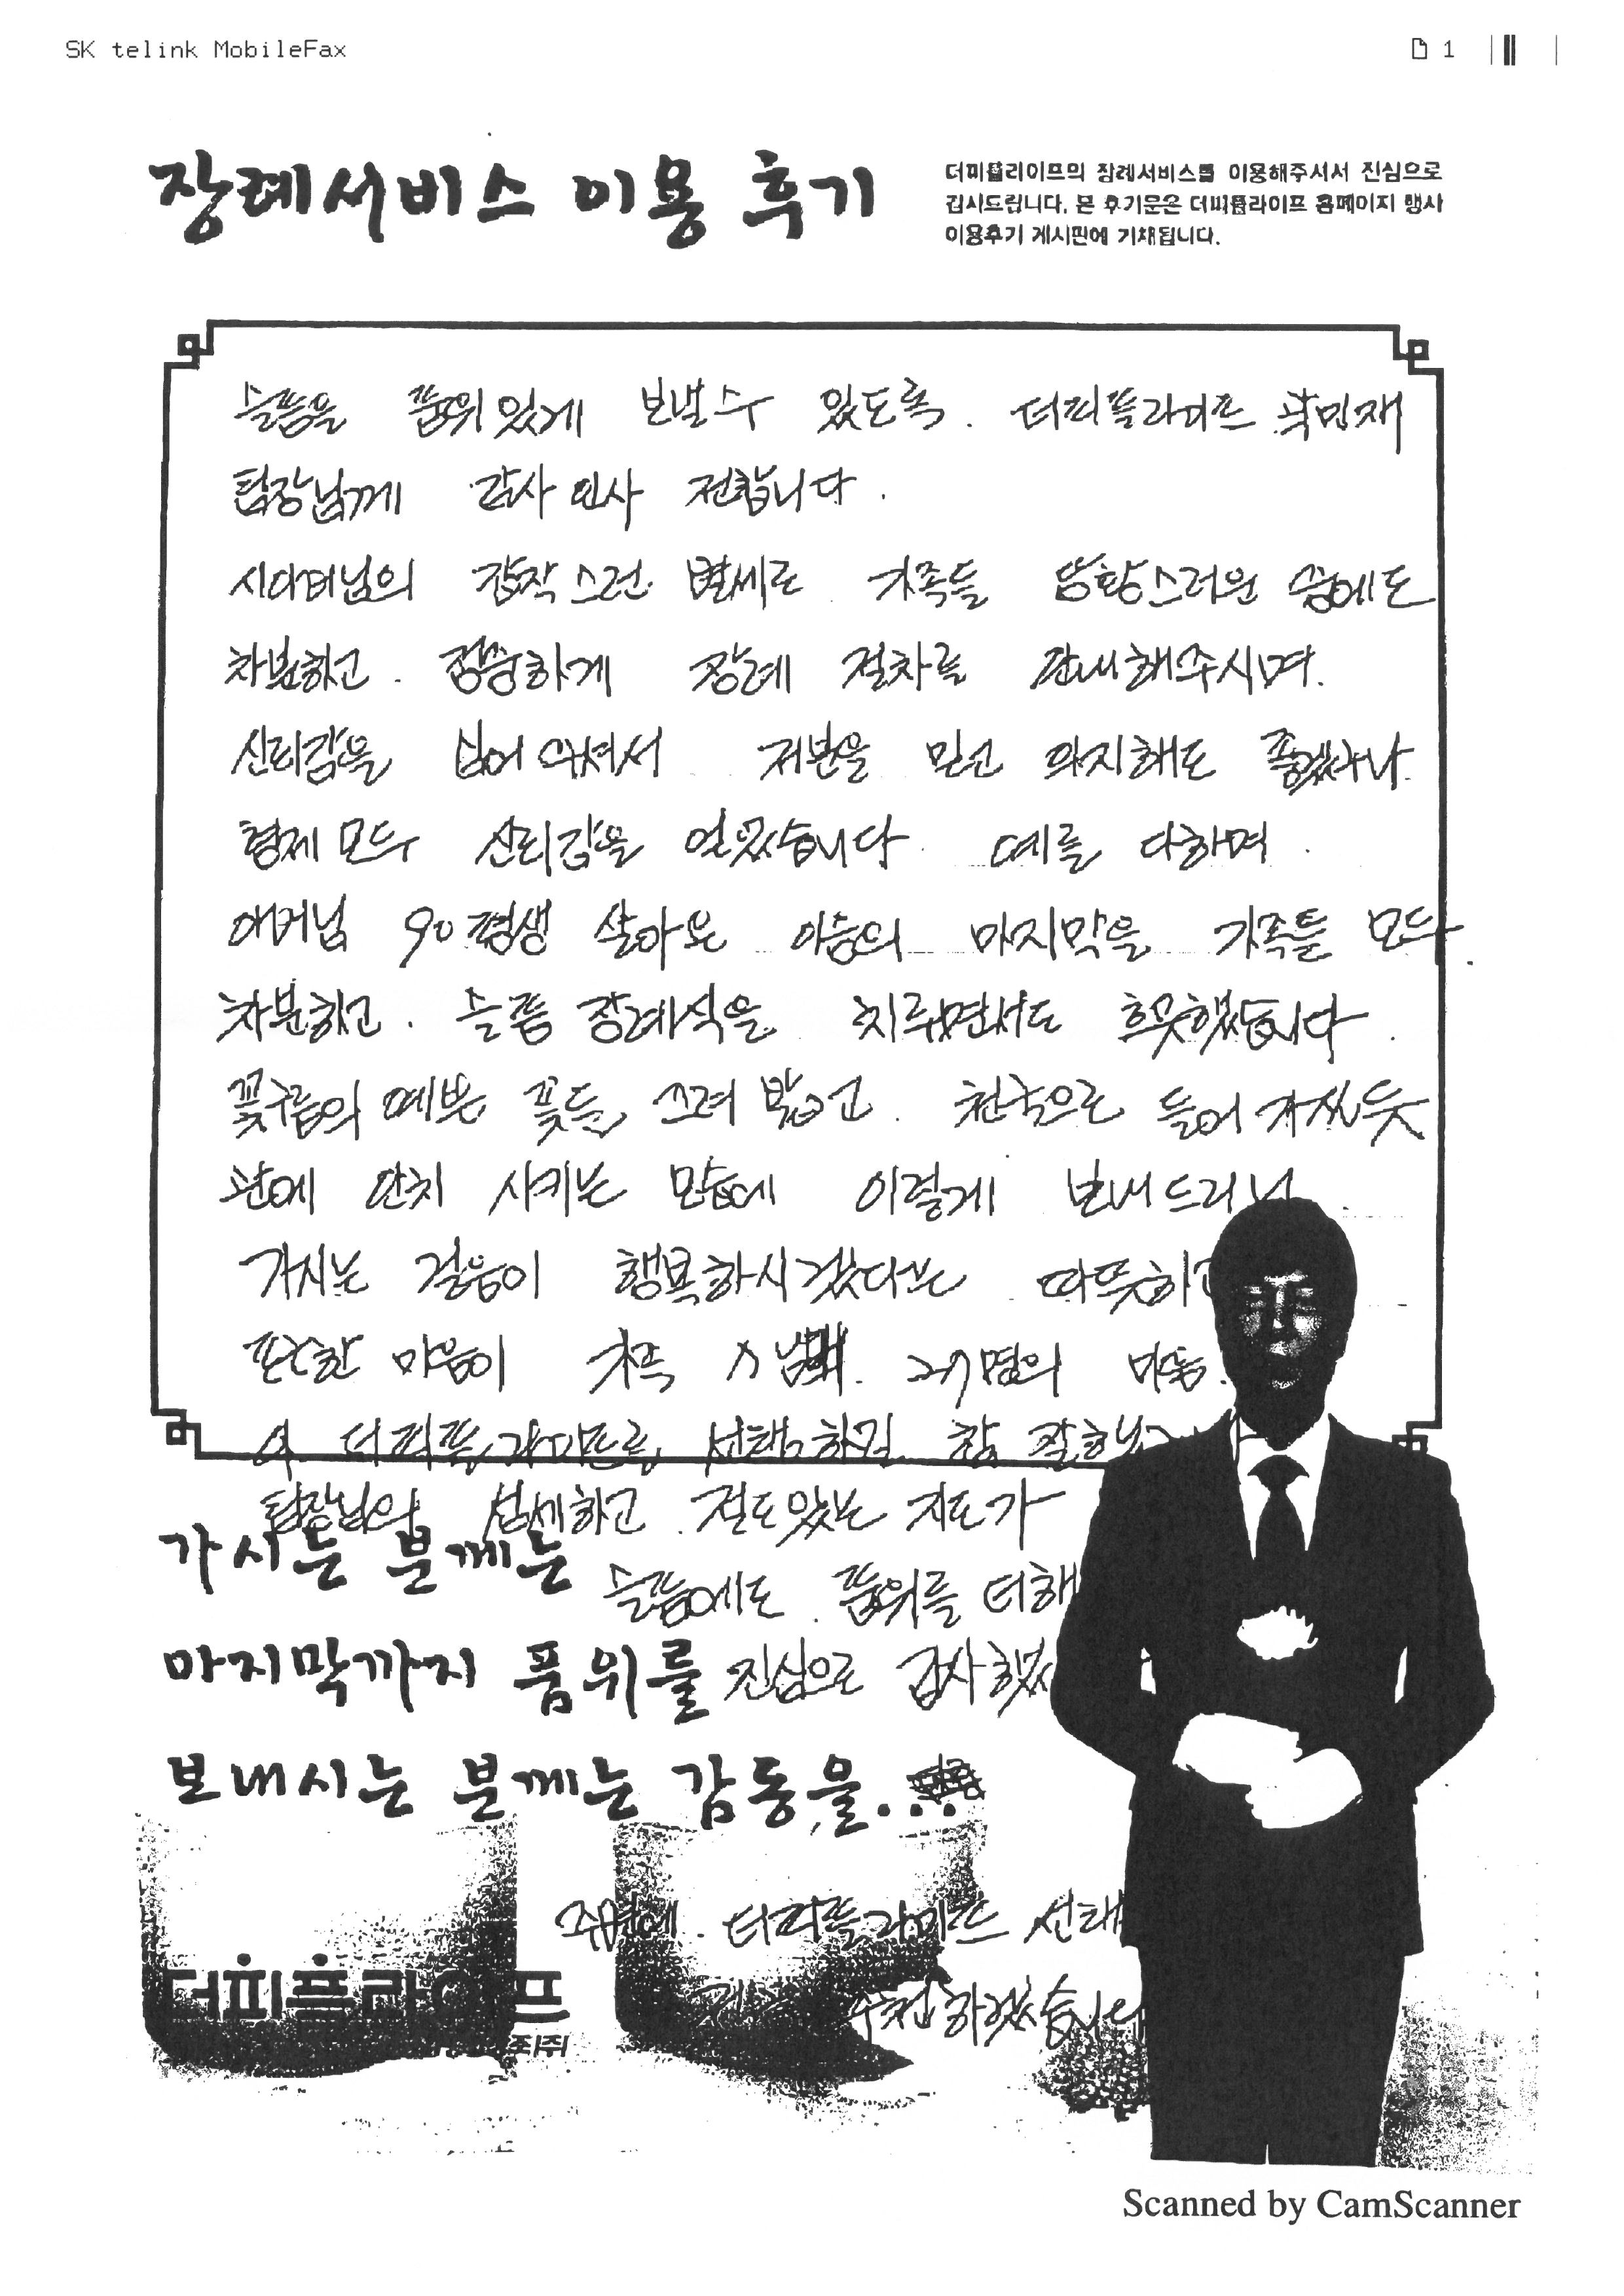 SK telink MobileFax
1
장례서비스 이용 후기
더피플라이프의 장례서비스를 이용해주셔서 진심으로
감사드립니다. 본 후기문은 더피플라이프 홈페이지 행사
이용후기 게시판에 기재됩니다.
슬픔을 품위있게 보낼수 있도록. 더피플라이프 곽민재
팀장님께 감사 인사 전합니다.
시어머님의 갑작스런 별세로 가족들 당황스러운 중에도
차분하고. 정중하게 장례 절차를 안내해주시며.
신뢰감을 심어 주셔서 저분을 믿고 의지해도 좋겠구나
형제 모두 신뢰감을 얻었습니다. 예를 다하며.
어머님 90평생 살아온 이승의 마지막을 가족들 모두
차분하고. 슬픔 장례식을 치루면서도 흐뭇했습니다.
꽃구름의 예쁜 꽃들 즈려 밟고. 천국으로 들어 가시듯
관에 안치 시키는 모습에 이렇게 보내드리니
가시는 걸음이 행복하시겠다는 따뜻하고
편안한 마음이 가족 27명의 마음.
더피플라이프를 선택하길 참 잘했
팀장님의 섬세하고 절도있는 지도가
가시는 분께는
슬픔에도. 품위를 더해
마지막까지 품위를 진심으로 감사했
보내시는 분께는 감동을...
주변에. 더피플라이프 선택
더피플라이프
추천하겠습니다
Scanned by CamScanner